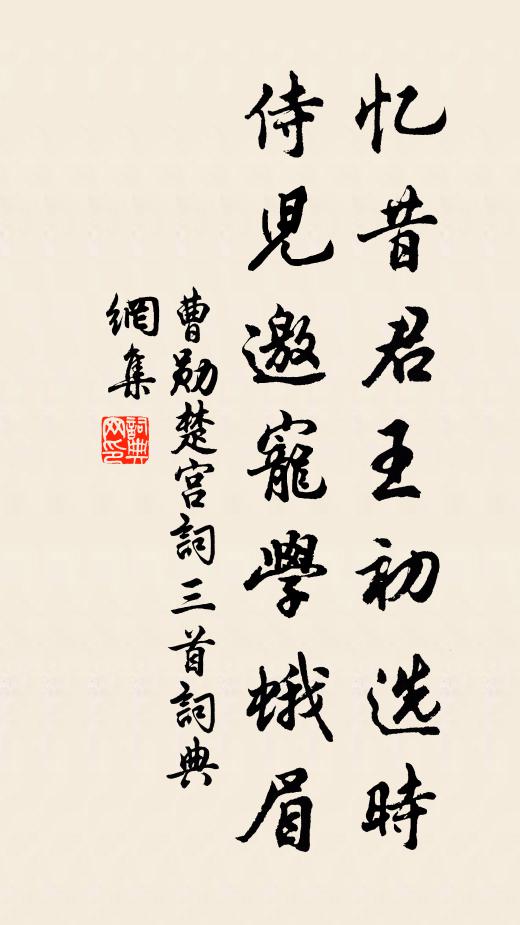 忆昔君王初选時
侍児邀寵學蛾眉
曹勛楚宫詞三首詞典
網集
詞典
网印